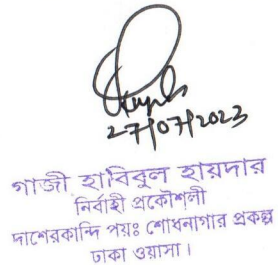 27/07/2023
গাজী হাবিবুল হায়দার
নির্বাহী প্রকৌশলী
দাশেরকান্দি পয়ঃ শোধনাগার প্রকল্প
ঢাকা ওয়াসা।